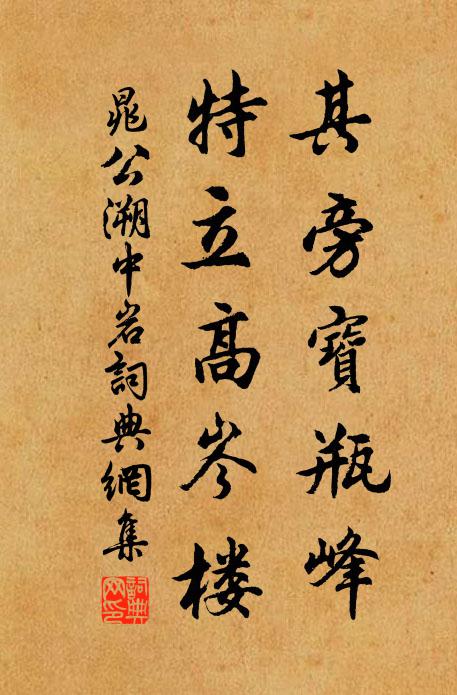 其旁寶瓶峰
特立高岑楼
晁公溯中岩詞典網集
詞典网印